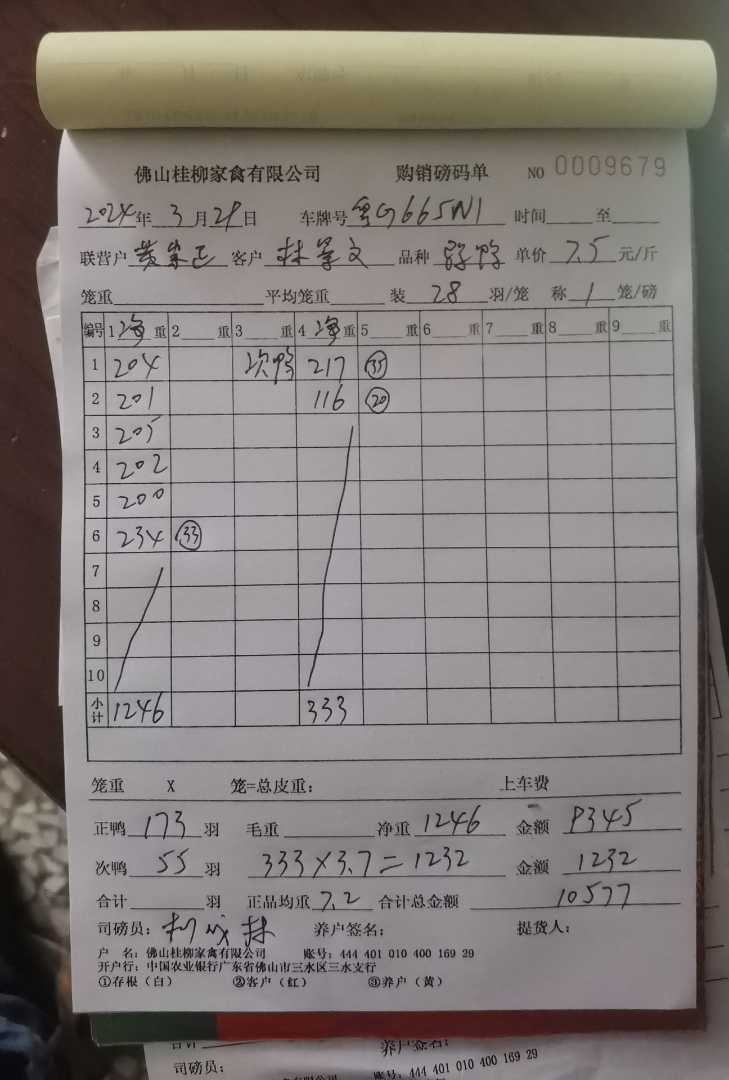 佛山桂柳家禽有限公司 购销磅码单 NO 0009679
2024年 3月29日 车牌号 粤G665N1 时间 至
联营户 黄崇正 客户 林 文 品种 单价 7.5 元/斤
笼重 平均笼重 装 28 羽/笼 称 1 笼/磅
编号 1 净 重 2 重 3 重 4 净 重 5 重 6 重 7 重 8 重 9 重
1 204 次鸭 217 35
2 201 116 20
3 205
4 202
5 200
6 234 33
7
8
9
10
小计 1246 333
笼重 X 笼=总皮重: 上车费
正鸭 173 羽 毛重 净重 1246 金额 9345
次鸭 55 羽 333×3.7=1232 金额 1232
合计 羽 正品均重 7.2 合计总金额 10577
司磅员: 林 养户签名: 提货人:
户 名: 佛山桂柳家禽有限公司 账号: 444 401 010 400 169 29
开户行: 中国农业银行广东省佛山市三水区三水支行
①存根(白) ②客户(红) ③养户(黄)
合计 养户签名:
司磅员:
有限公司 账号: 444 401 010 400 169 29